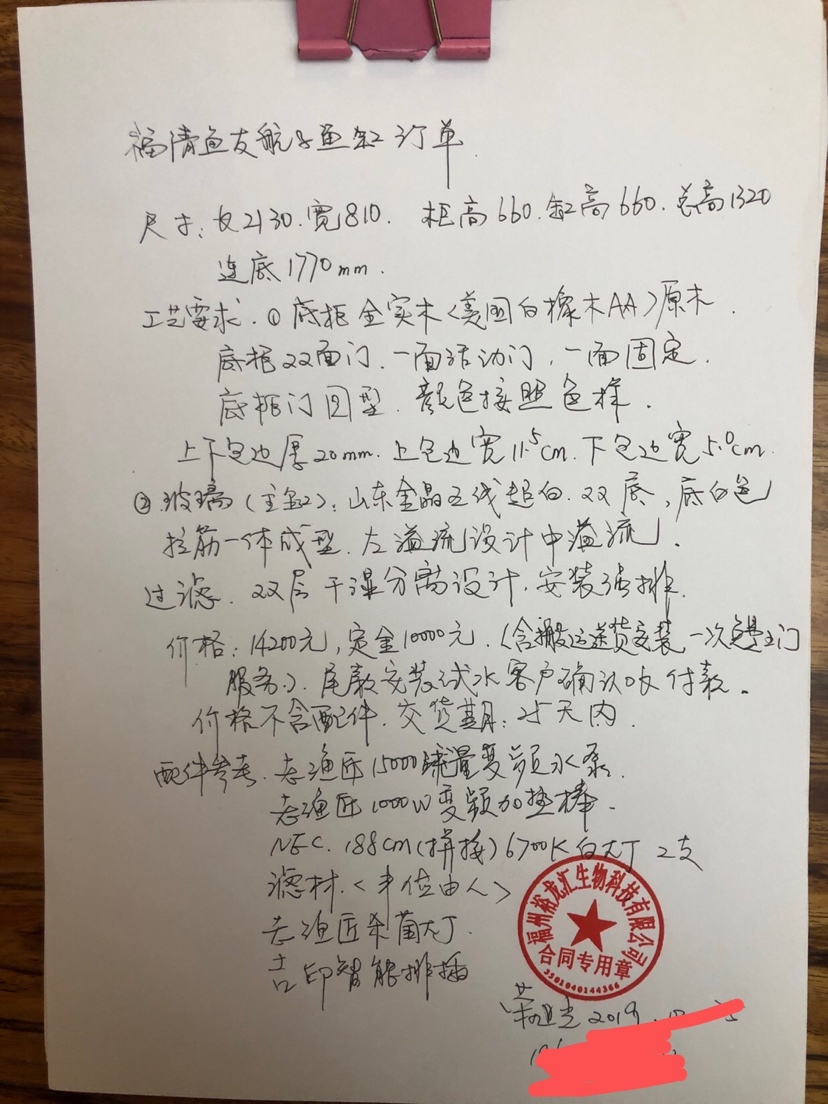 福清鱼友航子鱼缸订单.
尺寸: 长2130. 宽810. 柜高660. 缸高660. 总高1320
连底1770mm.
工艺要求. ① 底柜全实木<美国白橡木AA>原木.
底柜双面门. 一面活动门, 一面固定.
底柜门回型. 颜色按照色样.
上下包边厚20mm. 上包边宽11.5cm. 下包边宽5.0cm.
② 玻璃(主缸): 山东金晶五线超白. 双底, 底白色
拉筋一体成型. 左溢流设计中溢流.
过滤. 双层干湿分离设计. 安装强排.
价格: 14200元, 定金10000元. (含搬运送货安装一次上门
服务). 尾款安装试水客户确认后付款.
价格不含配件. 交货期: 25天内.
配件参考. 老渔匠15000流量变频水泵.
老渔匠1000W变频加热棒.
NEC. 188cm(拼接)6700K白灯 2支
滤材.
老渔匠杀菌灯.
吉印智能排插
福州裕龙汇生物科技有限公司
合同专用章
3501040144366
2019.